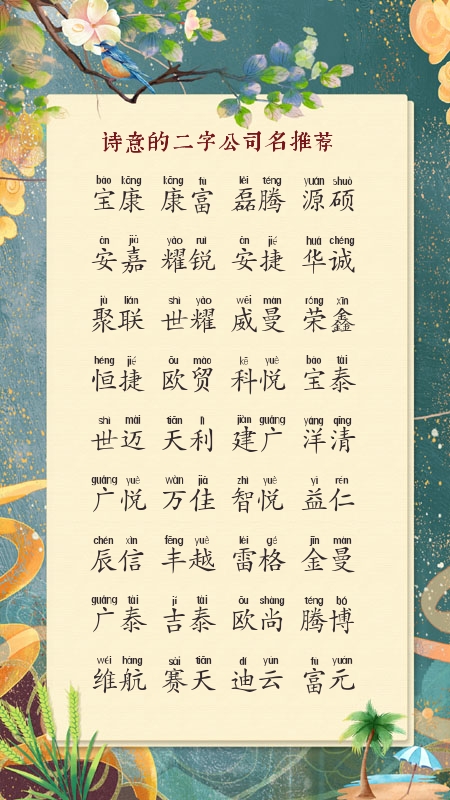 诗意的二字公司名推荐
bǎo kāng kāng fù lěi téng yuán shuò
宝康 康富 磊腾 源硕
ān jiā yào ruì ān jié huá chéng
安嘉 耀锐 安捷 华诚
jù lián shì yào wēi màn róng xīn
聚联 世耀 威曼 荣鑫
héng jié ōu mào kē yuè bǎo tài
恒捷 欧贸 科悦 宝泰
shì mài tiān lì jiàn guǎng yáng qīng
世迈 天利 建广 洋清
guǎng yuè wàn jiā zhì yuè yì rén
广悦 万佳 智悦 益仁
chén xìn fēng yuè léi gé jīn màn
辰信 丰越 雷格 金曼
guǎng tài jí tài ōu shàng téng bó
广泰 吉泰 欧尚 腾博
wéi háng sài tiān dí yún fù yuán
维航 赛天 迪云 富元